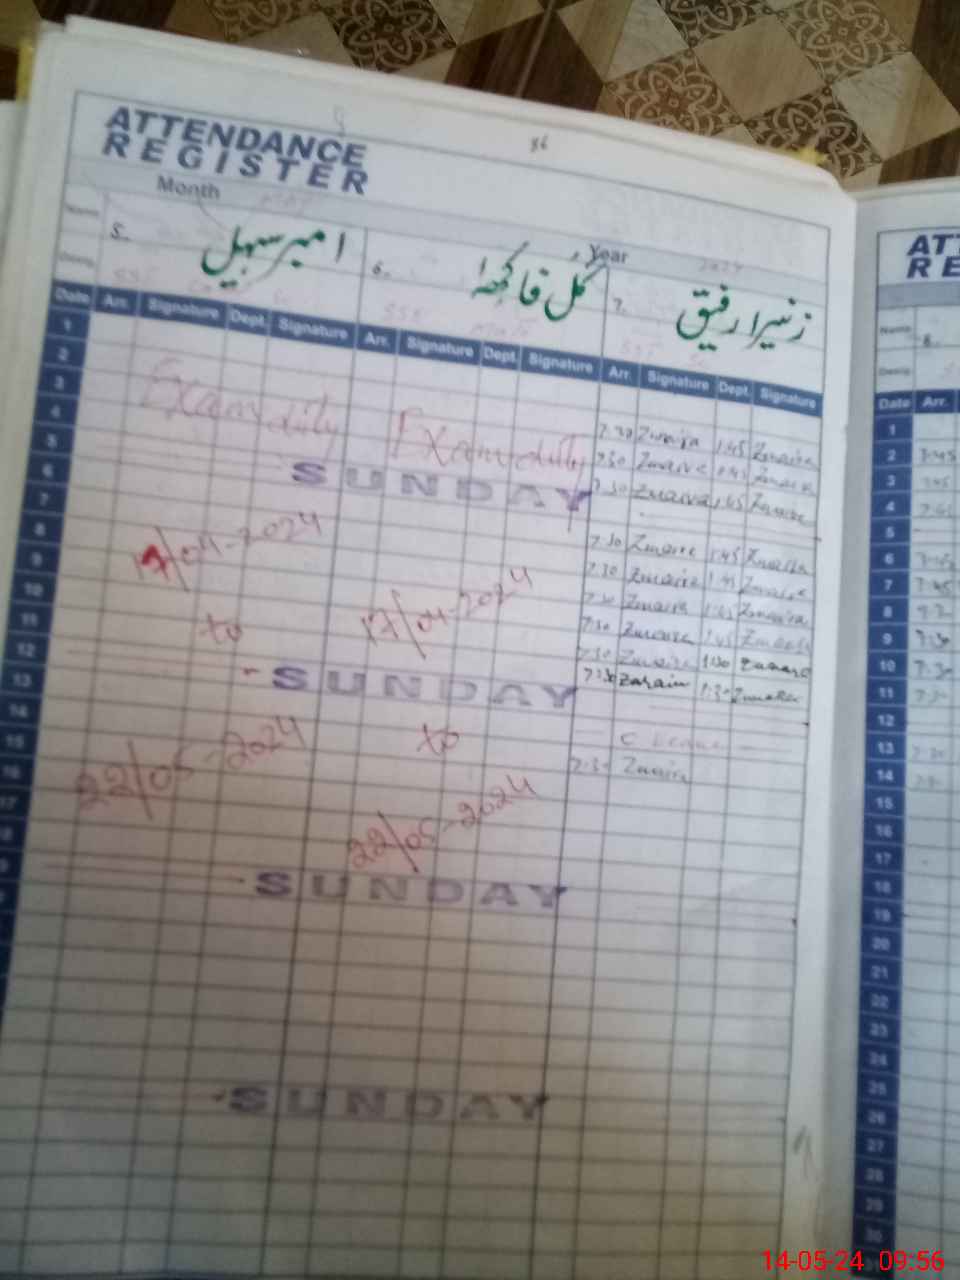 86
ATTENDANCE
REGISTER
Month
Year 2024
Name
5. امبر سہیل
6. گل فاکہہ
7. زنیرا رفیق
Desig.
SST
SSE
SST
Date Arr. Signature Dept. Signature Arr. Signature Dept. Signature Arr. Signature Dept. Signature
1
2
3
4
5
6
7
8
9
10
11
12
13
14
15
16
17
18
Exam duty
Exam duty
SUNDAY
17/04-2024
to
22/05-2024
17/04-2024
to
22/05-2024
SUNDAY
SUNDAY
SUNDAY
7:30 Zunaira 1:45 Zunaira
7:30 Zunaira 1:45 Zunaira
7:30 Zunaira 1:45 Zunaira
7:30 Zunaira 1:45 Zunaira
7:30 Zunaira 1:45 Zunaira
7:30 Zunaira 1:45 Zunaira
7:30 Zunaira 1:45 Zunaira
7:30 Zunaira 1:30 Zunaira
7:30 1:30 Zunaira
C Leave
7:30 Zunaira
ATT
RE
Name
8.
Desig.
Date Arr.
1
2 7:45
3 7:45
4
5
6 7:45
7 7:45
8
9 7:30
10 7:30
11 7:30
12
13 7:30
14
15
16
17
18
19
20
21
22
23
24
25
26
27
28
29
30
14-05-24 09:56